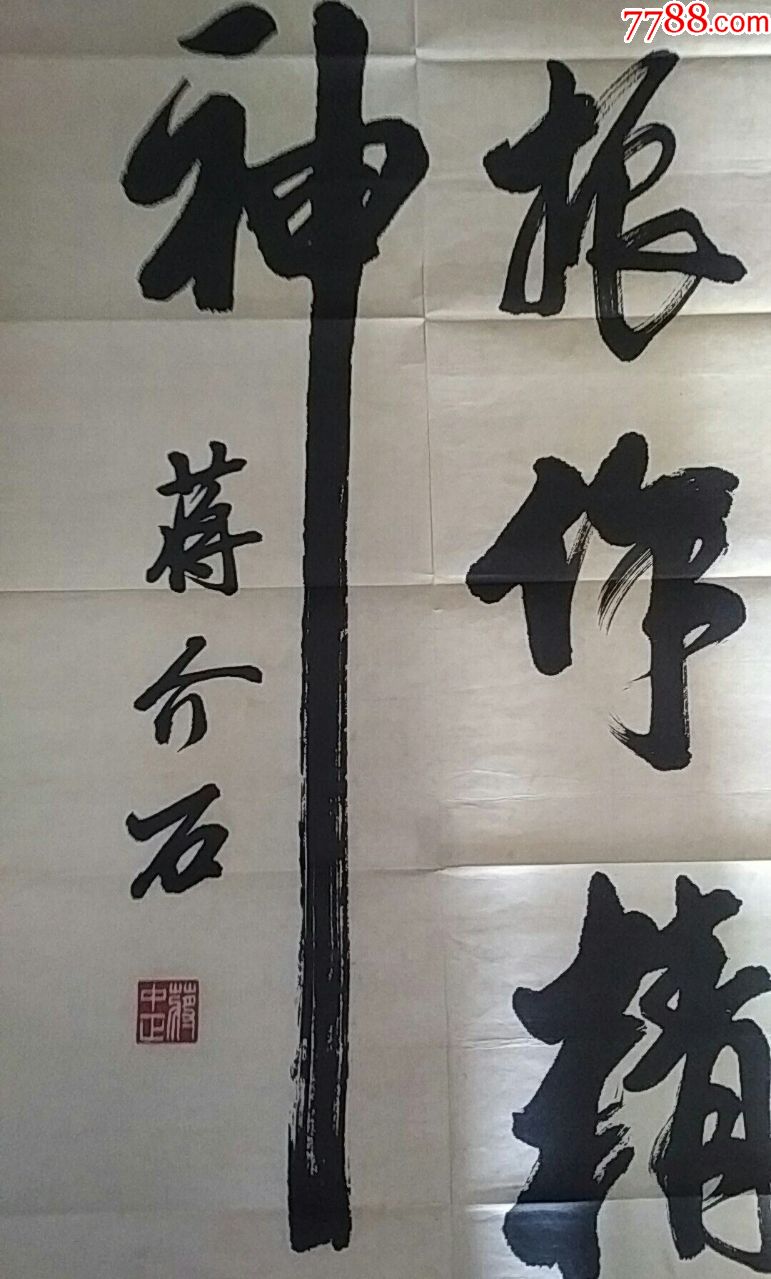 7788.com
振作精
神
蒋介石
蒋中正